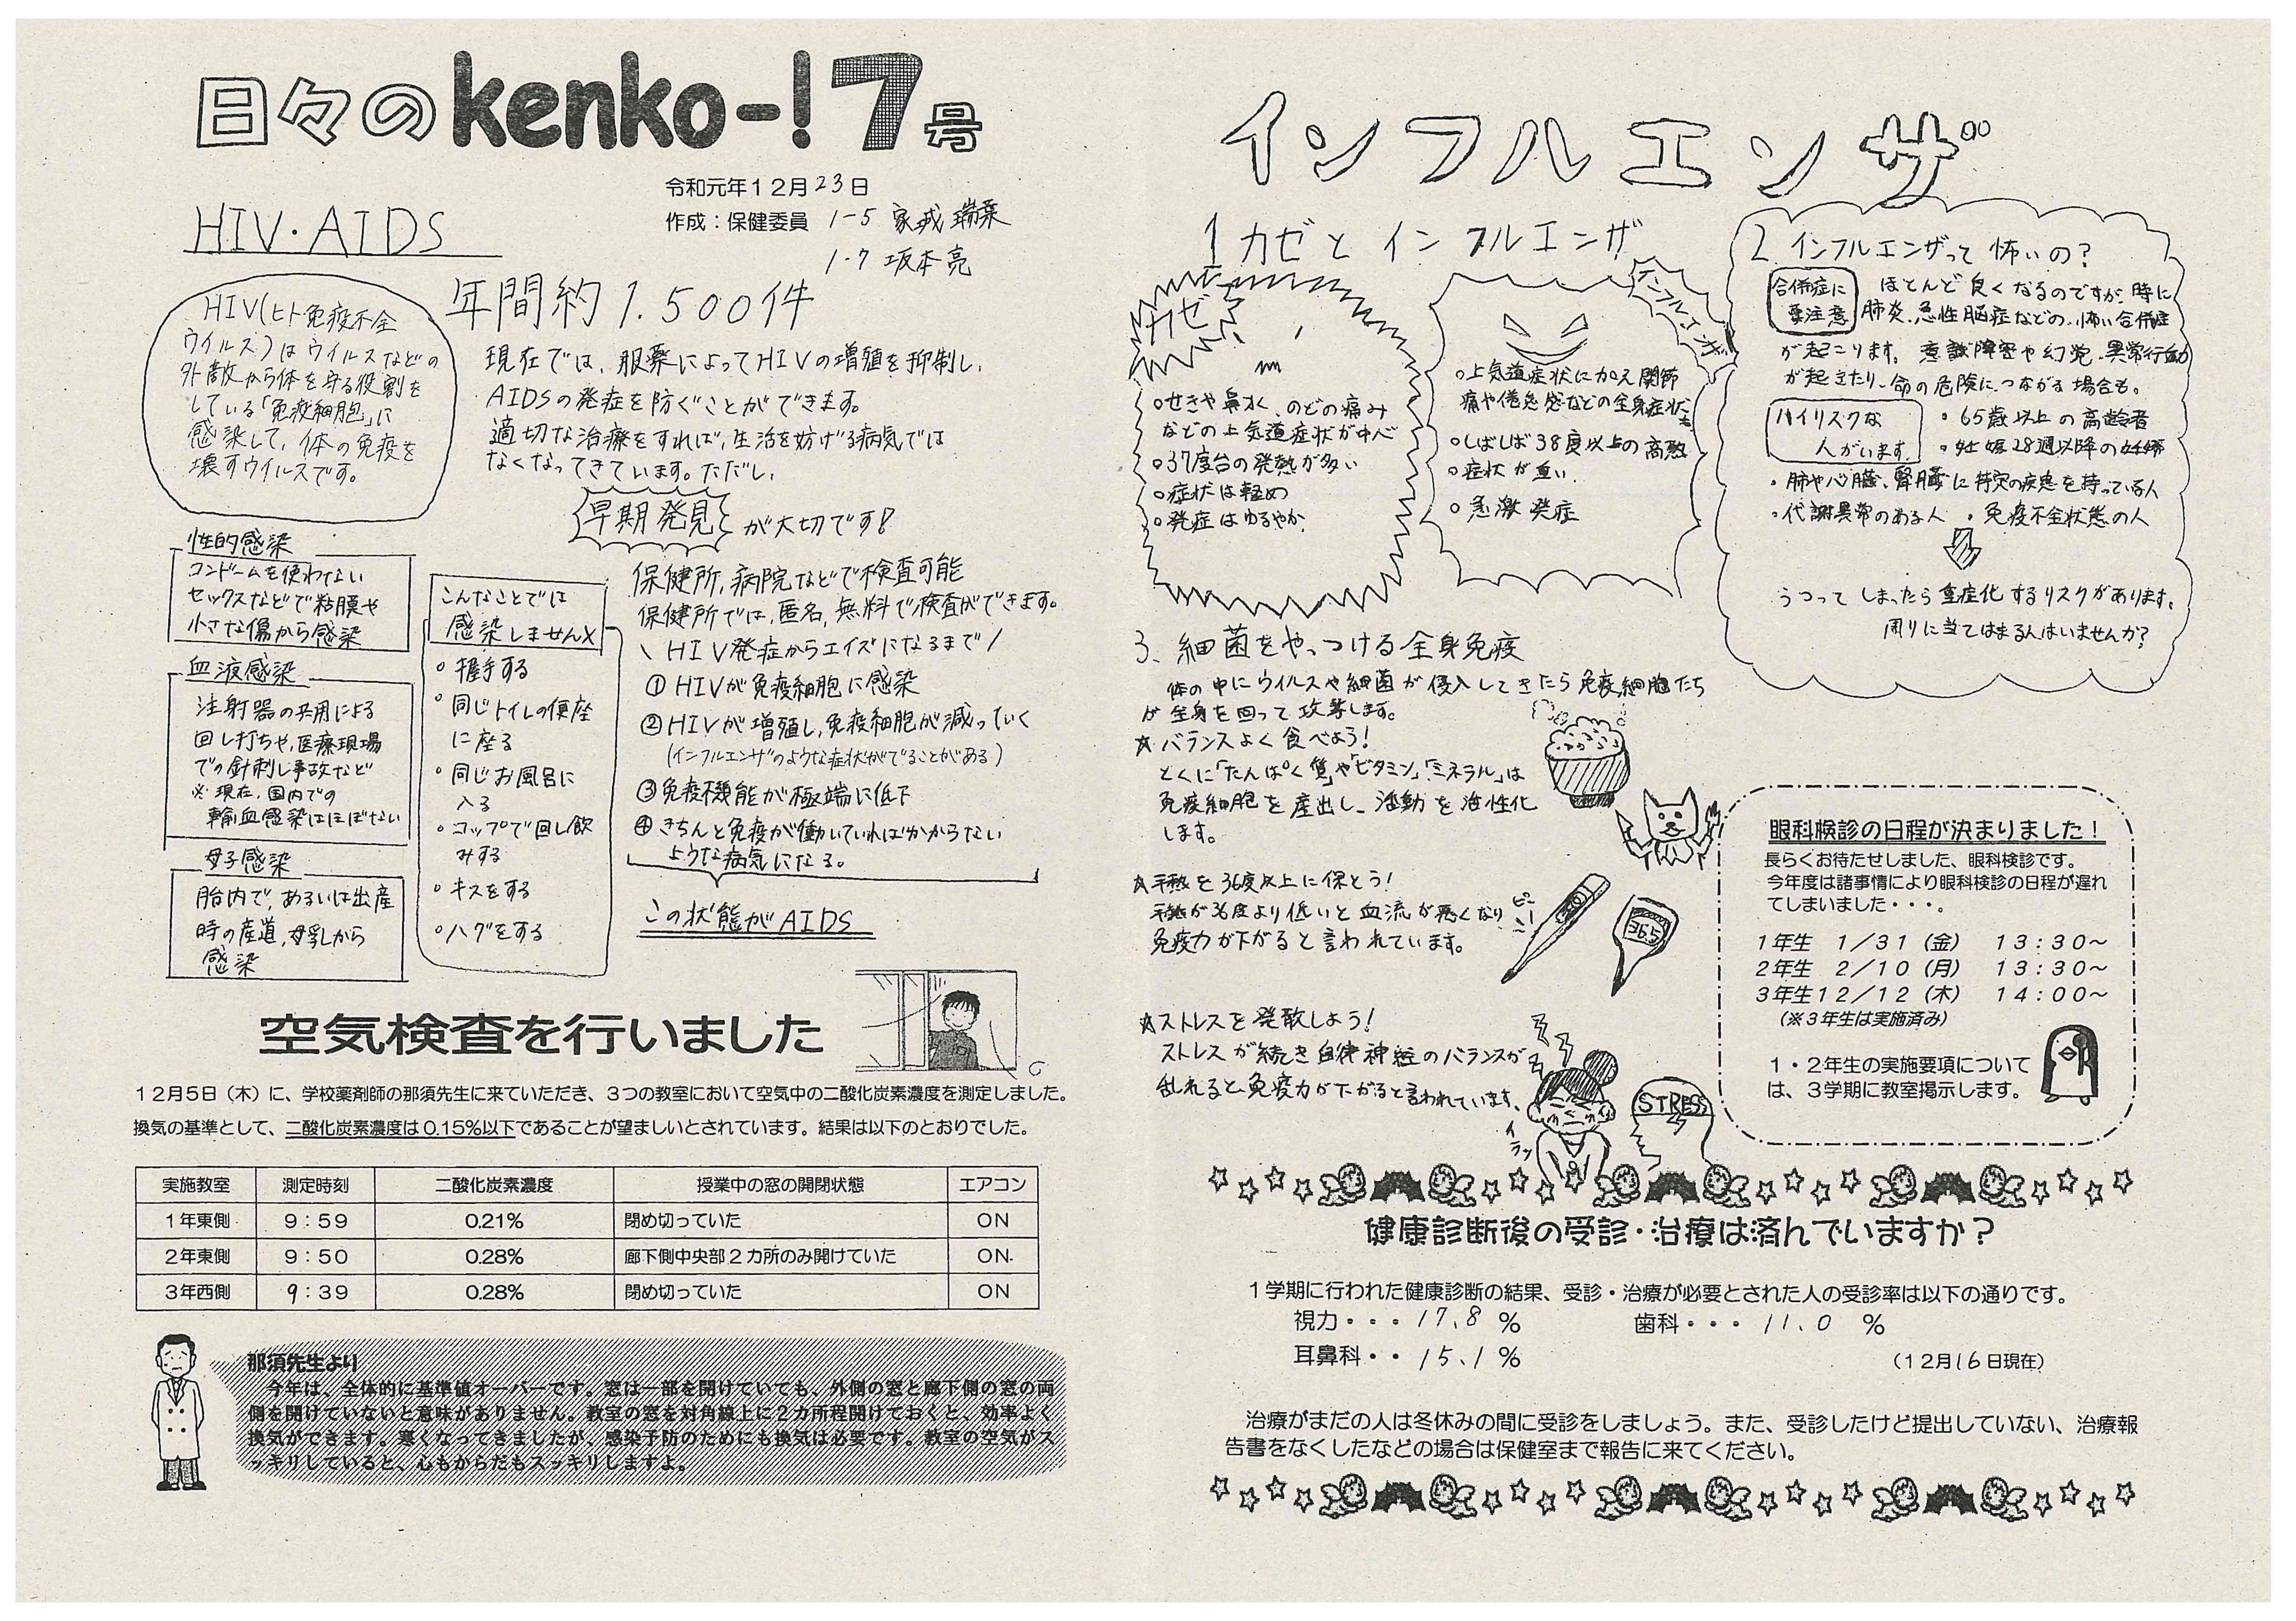 日々のkenko-!7号
令和元年12月23日
作成：保健委員 1-5 家戎 瑞葉
1-7 坂本亮
HIV・AIDS
HIV(ヒト免疫不全
ウイルス)はウイルスなどの
外敵から体を守る役割を
している「免疫細胞」に
感染して、体の免疫を
壊すウイルスです。
年間約1.500件
現在では、服薬によってHIVの増殖を抑制し、
AIDSの発症を防ぐことができます。
適切な治療をすれば、生活を妨げる病気では
なくなってきています。ただし、
早期発見が大切です!
性的感染
コンドームを使わない
セックスなどで粘膜や
小さな傷から感染
血液感染
注射器の共用による
回し打ちや、医療現場
での針刺し事故など
※現在、国内での
輸血感染はほぼない
母子感染
胎内で、あるいは出産
時の産道、母乳から
感染
こんなことでは
感染しません×
。握手する
。同じトイレの便座
に座る
。同じお風呂に
入る
。コップで回し飲
みする
。キスをする
。ハグをする
保健所、病院などで検査可能
保健所では、匿名、無料で検査ができます。
\ HIV発症からエイズになるまで /
①HIVが免疫細胞に感染
②HIVが増殖し、免疫細胞が減っていく
(インフルエンザのような症状がでることがある)
③免疫機能が極端に低下
④きちんと免疫が働いていればかからない
ような病気になる。
この状態がAIDS
空気検査を行いました
12月5日（木）に、学校薬剤師の那須先生に来ていただき、3つの教室において空気中の二酸化炭素濃度を測定しました。
換気の基準として、二酸化炭素濃度は0.15%以下であることが望ましいとされています。結果は以下のとおりでした。
実施教室 測定時刻 二酸化炭素濃度 授業中の窓の開閉状態 エアコン
1年東側 9：59 0.21% 閉め切っていた ON
2年東側 9：50 0.28% 廊下側中央部2カ所のみ開けていた ON
3年西側 9：39 0.28% 閉め切っていた ON
那須先生より
今年は、全体的に基準値オーバーです。窓は一部を開けていても、外側の窓と廊下側の窓の両
側を開けていないと意味がありません。教室の窓を対角線上に2カ所程開けておくと、効率よく
換気ができます。寒くなってきましたが、感染予防のためにも換気は必要です。教室の空気がス
ッキリしていると、心もからだもスッキリしますよ。
インフルエンザ
1 カゼとインフルエンザ
カゼ
。せきや鼻水、のどの痛み
などの上気道症状が中心
。37度台の発熱が多い
。症状は軽め
。発症はゆるやか
インフルエンザ
。上気道症状に加え関節
痛や倦怠感などの全身症状も
。しばしば38度以上の高熱
。症状が重い
。急激発症
2 インフルエンザって怖いの?
合併症に
要注意
ほとんど良くなるのですが、時に
肺炎、急性脳症などの、怖い合併症
が起こります。意識障害や幻覚、異常行動
が起きたり、命の危険につながる場合も。
ハイリスクな
人がいます。
・65歳以上の高齢者
・妊娠28週以降の妊婦
・肺や心臓、腎臓に特定の疾患を持っている人
・代謝異常のある人 ・免疫不全状態の人
うつってしまったら重症化するリスクがあります。
周りに当てはまる人はいませんか?
3、細菌をやっつける全身免疫
体の中にウイルスや細菌が侵入してきたら免疫細胞たち
が全身を回って攻撃します。
☆バランスよく食べよう!
とくに「たんぱく質」や「ビタミン」「ミネラル」は
免疫細胞を産出し、活動を活性化
します。
☆平熱を36度以上に保とう!
平熱が36度より低いと血流が悪くなり
免疫力が下がると言われています。
ピピー!
36.5
☆ストレスを発散しよう!
ストレスが続き自律神経のバランスが
乱れると免疫力が下がると言われています。
イラッ
STRESS
眼科検診の日程が決まりました！
長らくお待たせしました、眼科検診です。
今年度は諸事情により眼科検診の日程が遅れ
てしまいました・・・。
1年生 1／31（金） 13：30～
2年生 2／10（月） 13：30～
3年生12／12（木） 14：00～
（※3年生は実施済み）
1・2年生の実施要項について
は、3学期に教室掲示します。
健康診断後の受診・治療は済んでいますか？
1学期に行われた健康診断の結果、受診・治療が必要とされた人の受診率は以下の通りです。
視力・・・17.8％ 歯科・・・11.0％
耳鼻科・・15.1％
（12月16日現在）
治療がまだの人は冬休みの間に受診をしましょう。また、受診したけど提出していない、治療報
告書をなくしたなどの場合は保健室まで報告に来てください。